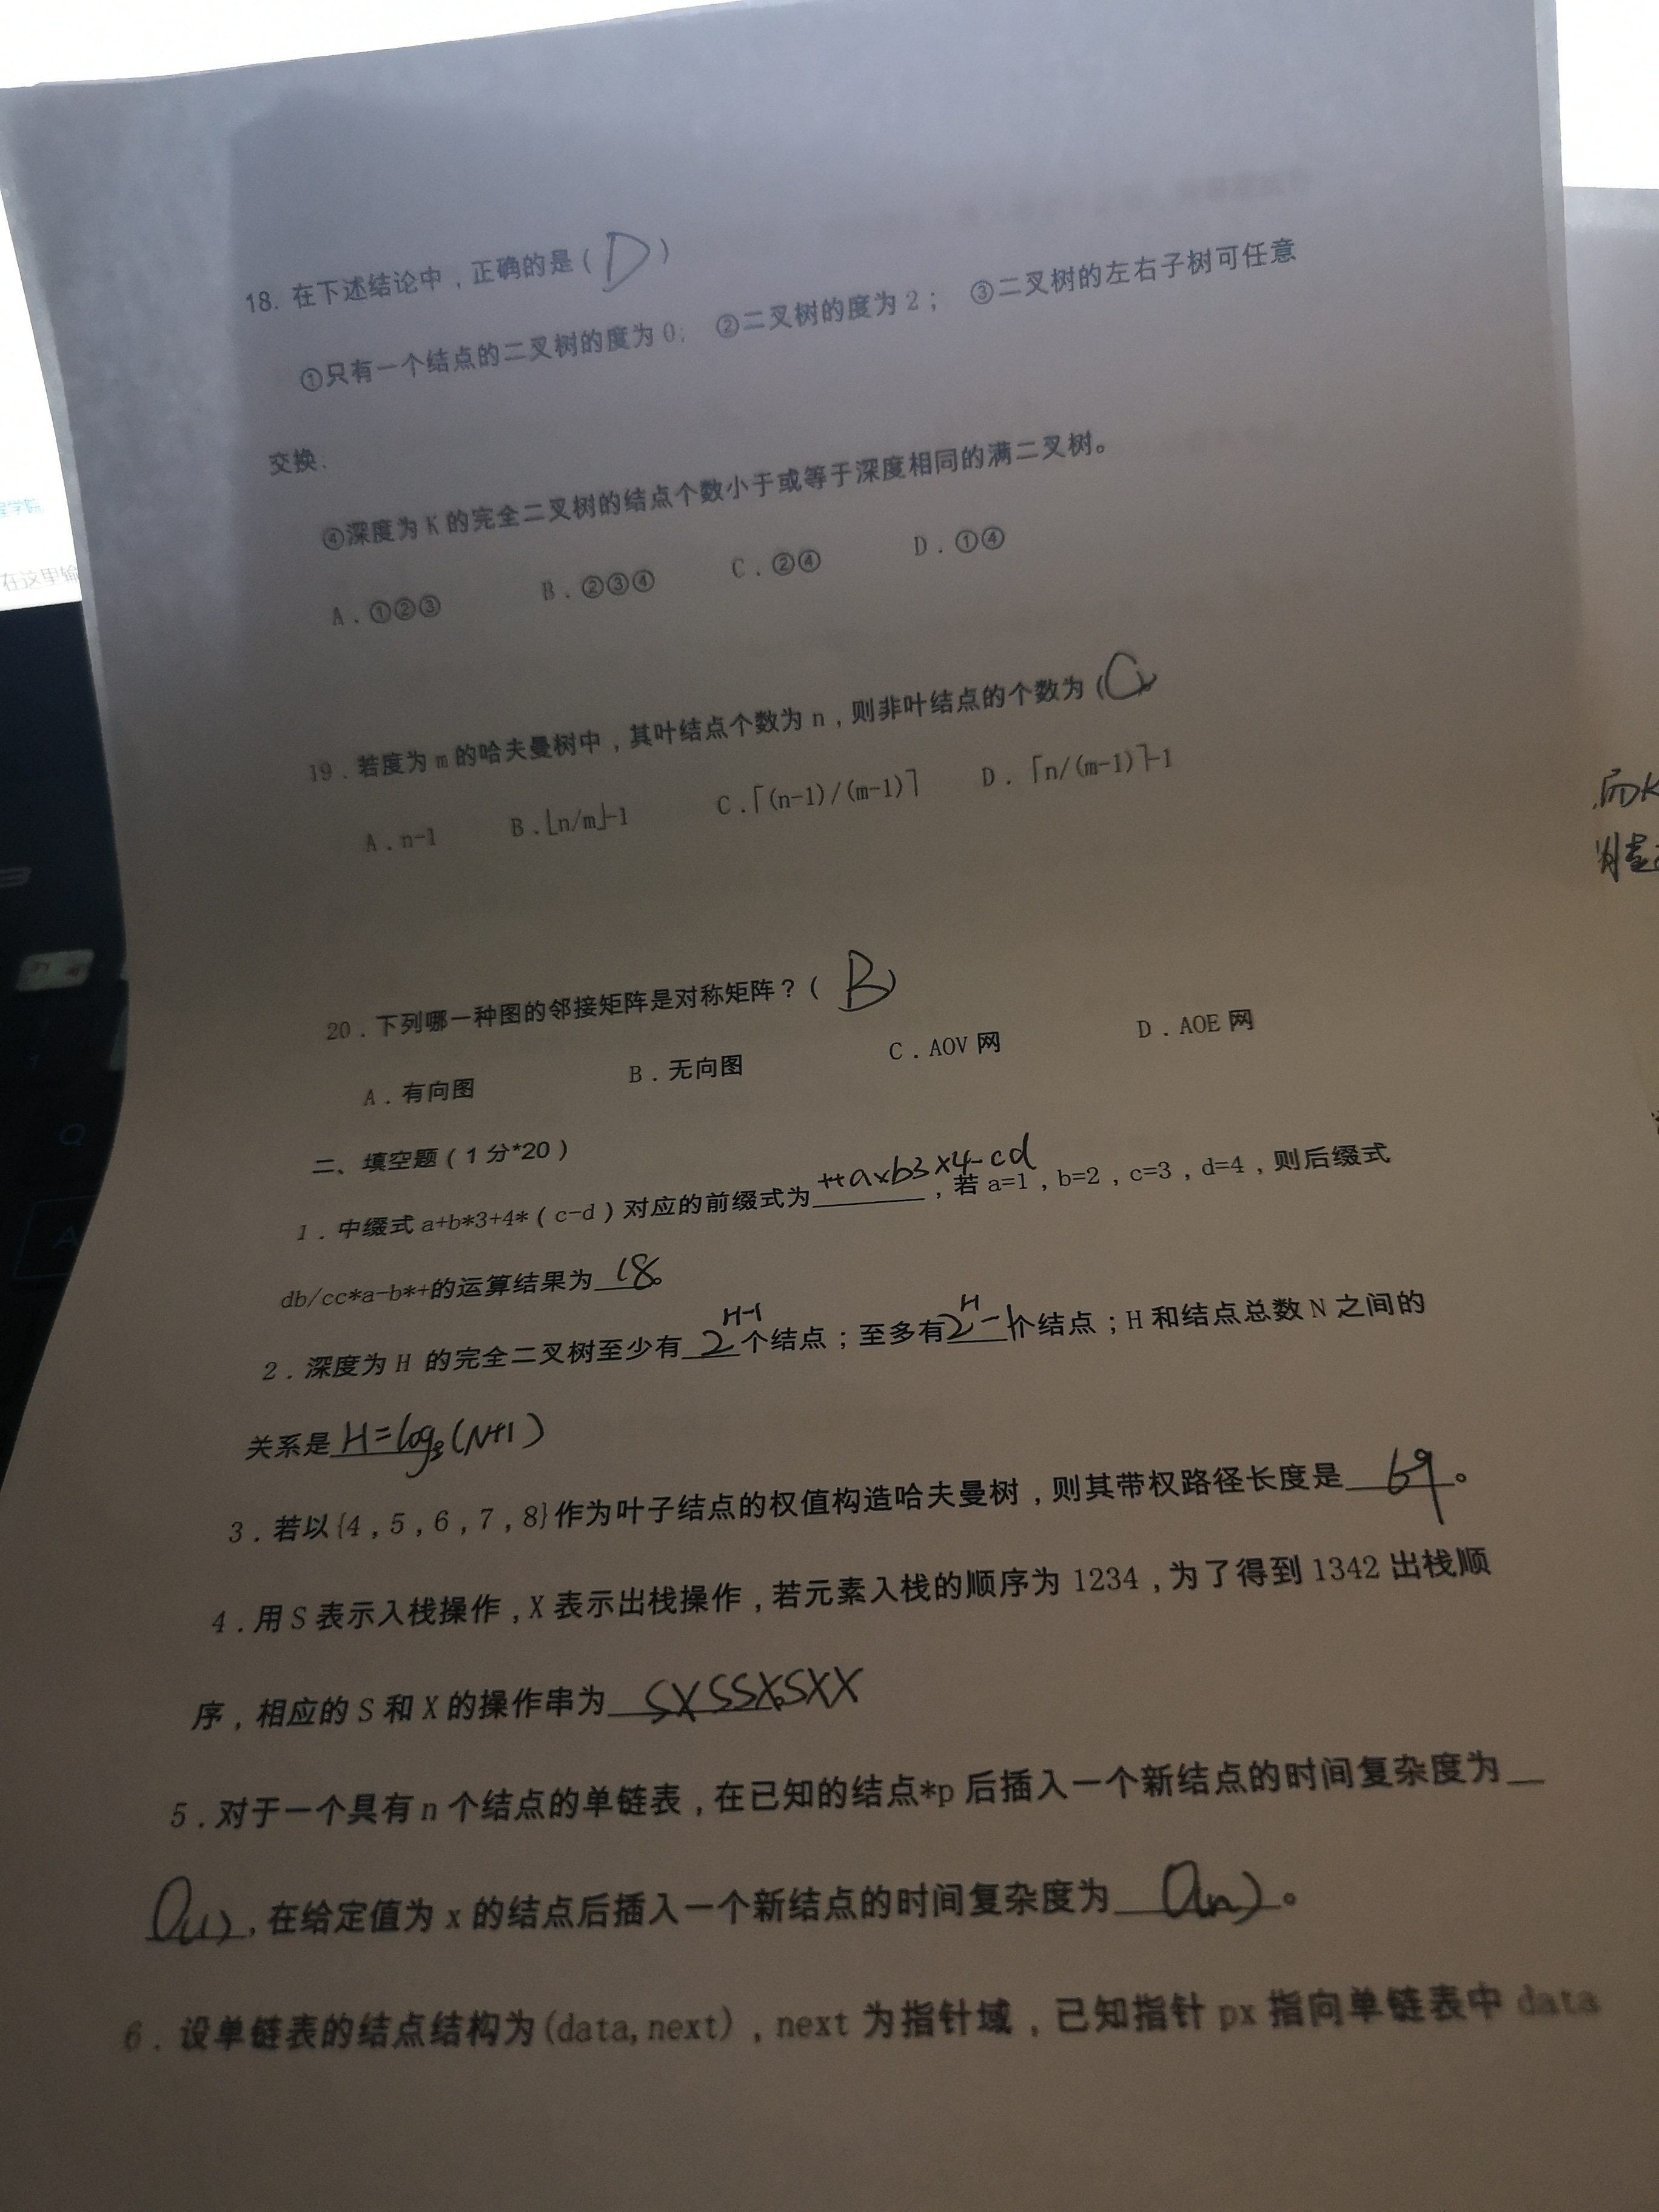 18. 在下述结论中，正确的是( D )
①只有一个结点的二叉树的度为 0; ②二叉树的度为 2； ③二叉树的左右子树可任意
交换.
④深度为 K 的完全二叉树的结点个数小于或等于深度相同的满二叉树。
A．①②③ B．②③④ C．②④ D．①④
19．若度为 m 的哈夫曼树中，其叶结点个数为 n，则非叶结点的个数为( C )。
A．n-1 B.⌊n/m⌋-1 C.⌈(n-1)/(m-1)⌉ D．⌈n/(m-1)⌉-1
20．下列哪一种图的邻接矩阵是对称矩阵？( B )
A．有向图 B．无向图 C．AOV 网 D．AOE 网
二、填空题（1 分*20）
1．中缀式 a+b*3+4*（c-d）对应的前缀式为 ++a×b3×4-cd ，若 a=1，b=2，c=3，d=4，则后缀式
db/cc*a-b*+的运算结果为 18。
2．深度为 H 的完全二叉树至少有 2^(H-1) 个结点；至多有 2^H-1 个结点；H 和结点总数 N 之间的
关系是 H=log₂(N+1)
3．若以{4，5，6，7，8}作为叶子结点的权值构造哈夫曼树，则其带权路径长度是 69 。
4．用 S 表示入栈操作，X 表示出栈操作，若元素入栈的顺序为 1234，为了得到 1342 出栈顺
序，相应的 S 和 X 的操作串为 SXSSXSXX
5．对于一个具有 n 个结点的单链表，在已知的结点*p 后插入一个新结点的时间复杂度为
O(1)，在给定值为 x 的结点后插入一个新结点的时间复杂度为 O(n) 。
6．设单链表的结点结构为(data,next)，next 为指针域，已知指针 px 指向单链表中 data
程学院
在这里输
而K
Q
A